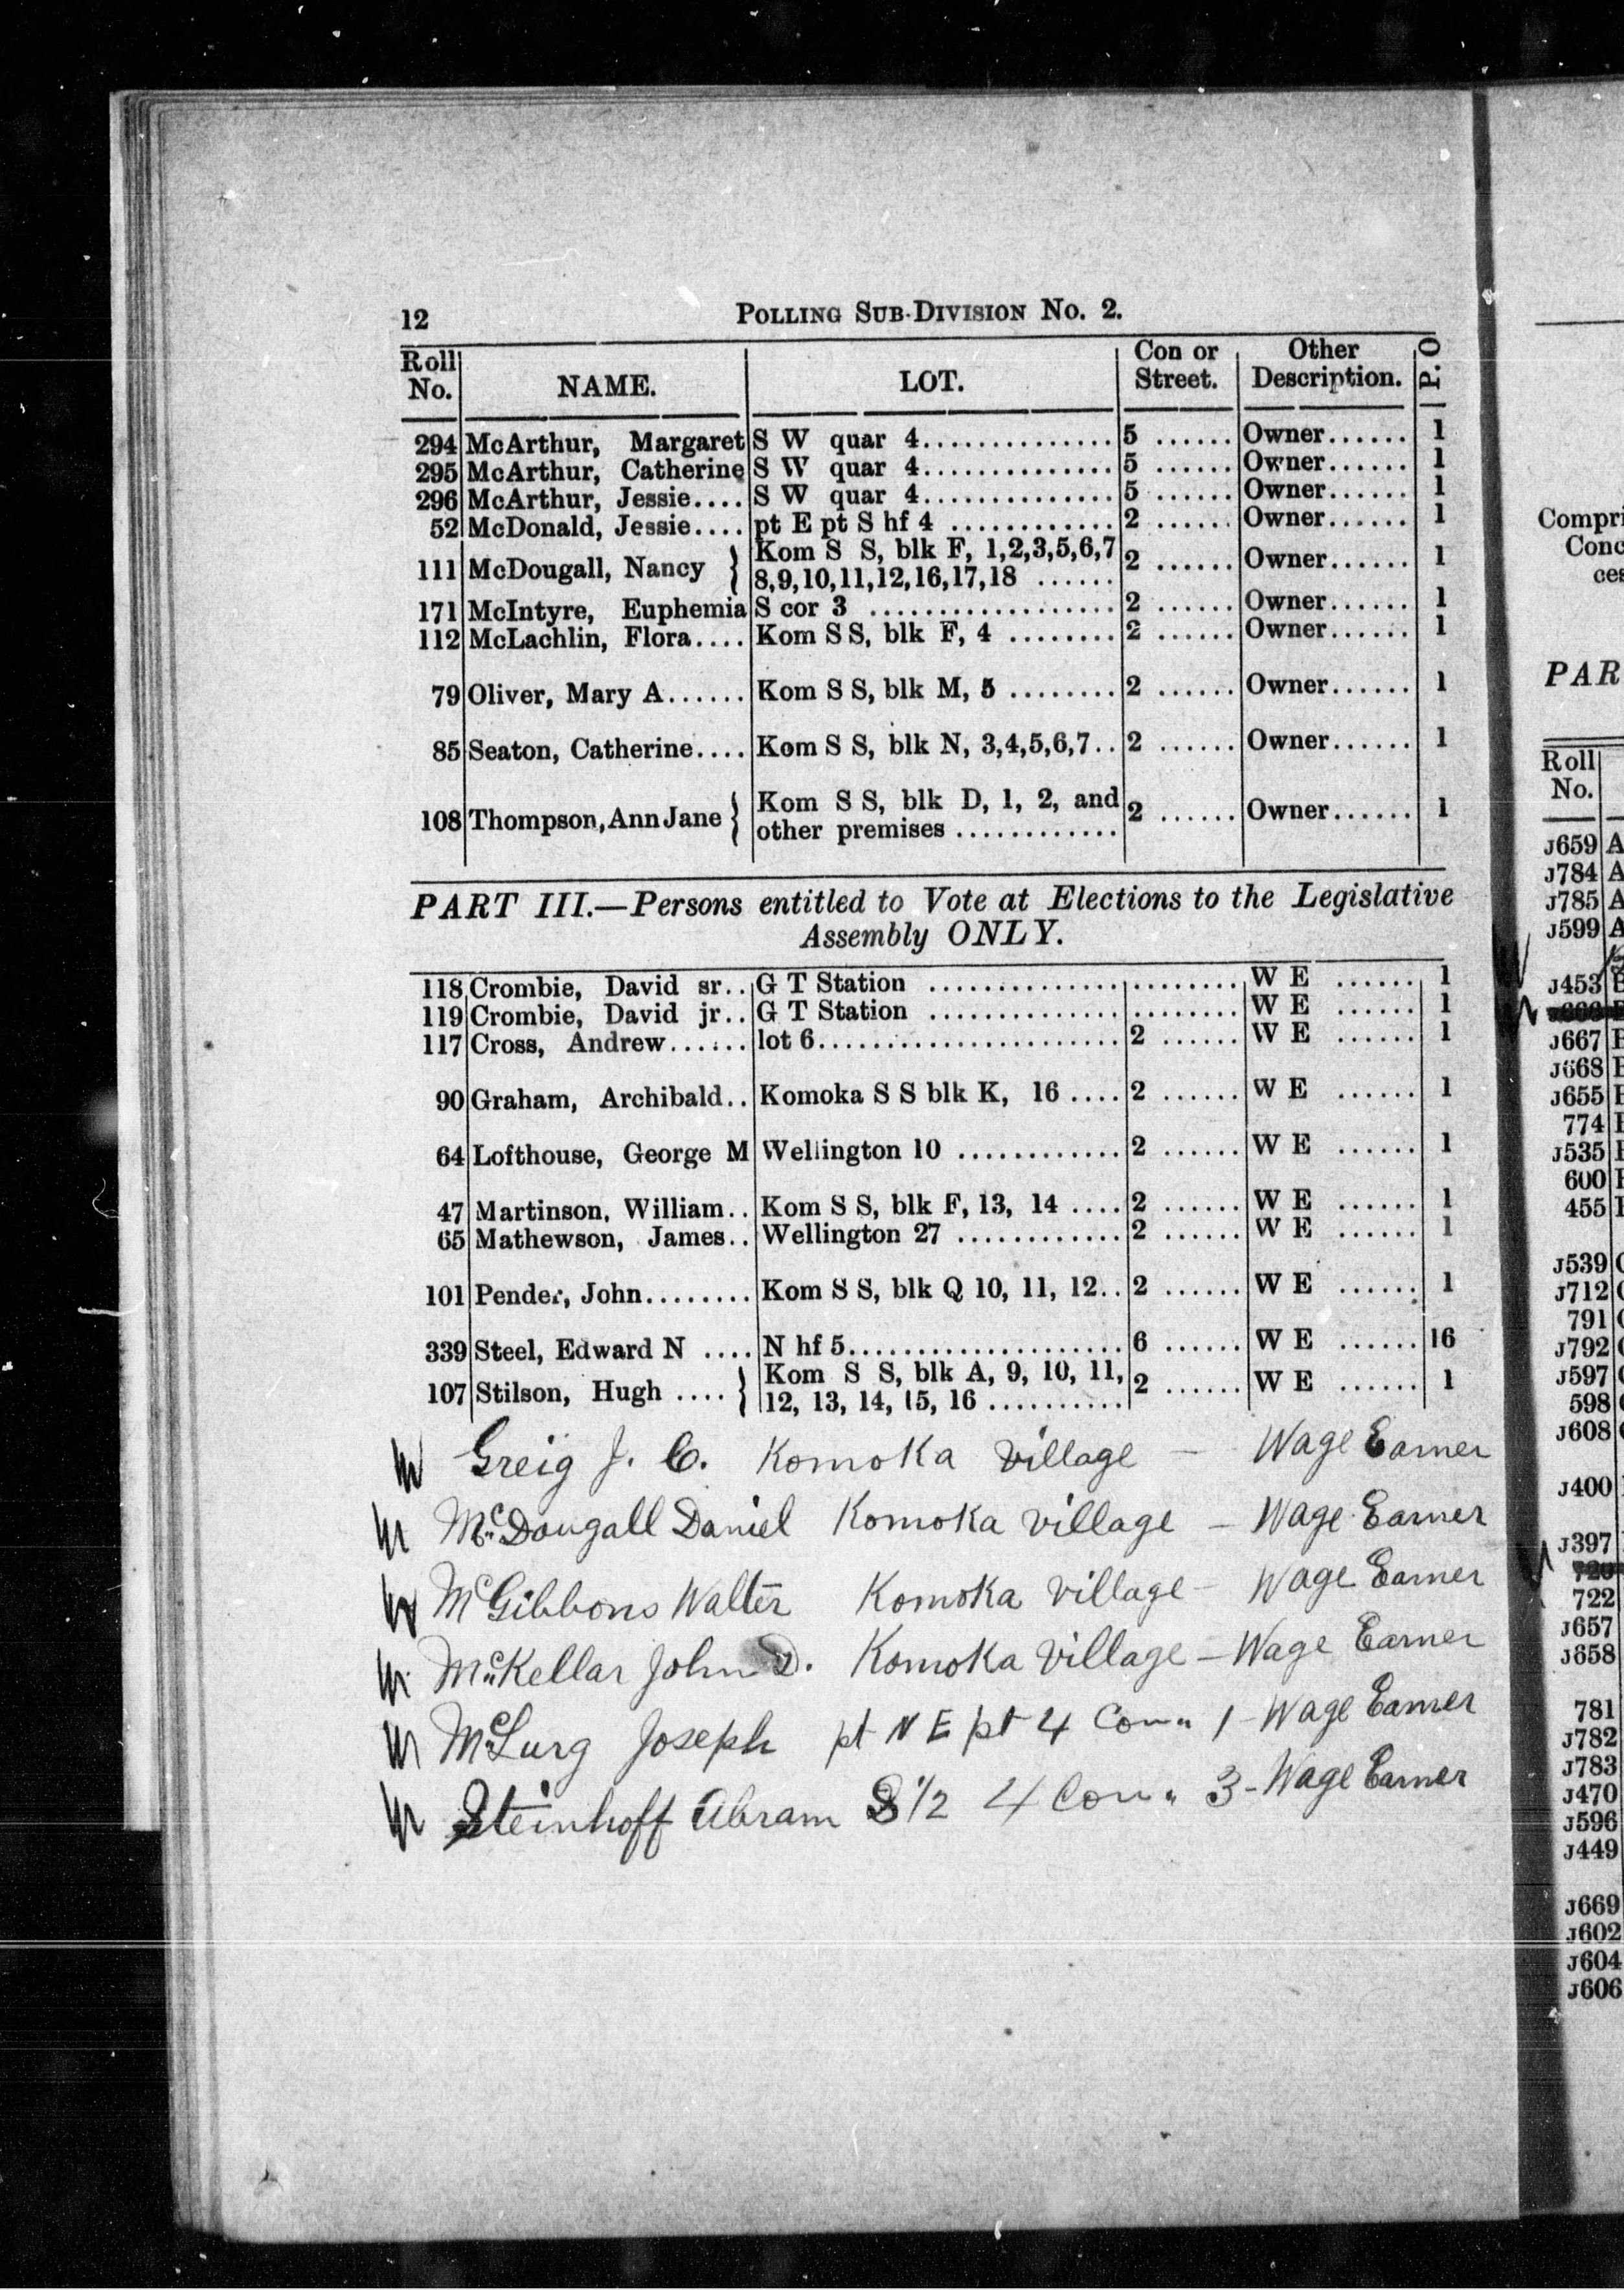 12 POLLING SUB-DIVISION No. 2.
Roll No. NAME. LOT. Con or Street. Other Description. P. O
294 McArthur, Margaret S W quar 4............... 5 ...... Owner...... 1
295 McArthur, Catherine S W quar 4............... 5 ...... Owner...... 1
296 McArthur, Jessie.... S W quar 4............... 5 ...... Owner...... 1
52 McDonald, Jessie.... pt E pt S hf 4 ............. 2 ...... Owner...... 1
111 McDougall, Nancy } Kom S S, blk F, 1,2,3,5,6,7
8,9,10,11,12,16,17,18 ...... 2 ...... Owner...... 1
171 McIntyre, Euphemia S cor 3 .................. 2 ...... Owner...... 1
112 McLachlin, Flora.... Kom S S, blk F, 4 ........ 2 ...... Owner...... 1
79 Oliver, Mary A...... Kom S S, blk M, 5 ........ 2 ...... Owner...... 1
85 Seaton, Catherine.... Kom S S, blk N, 3,4,5,6,7.. 2 ...... Owner...... 1
108 Thompson, Ann Jane } Kom S S, blk D, 1, 2, and
other premises ............ 2 ...... Owner...... 1
PART III.—Persons entitled to Vote at Elections to the Legislative
Assembly ONLY.
118 Crombie, David sr.. G T Station .............. ........ W E ...... 1
119 Crombie, David jr.. G T Station .............. ........ W E ...... 1
117 Cross, Andrew...... lot 6...................... 2 ...... W E ...... 1
90 Graham, Archibald.. Komoka S S blk K, 16 .... 2 ...... W E ...... 1
64 Lofthouse, George M Wellington 10 ............ 2 ...... W E ...... 1
47 Martinson, William.. Kom S S, blk F, 13, 14 .... 2 ...... W E ...... 1
65 Mathewson, James.. Wellington 27 ............ 2 ...... W E ...... 1
101 Pender, John........ Kom S S, blk Q 10, 11, 12.. 2 ...... W E ...... 1
339 Steel, Edward N .... N hf 5.................... 6 ...... W E ...... 16
107 Stilson, Hugh .... } Kom S S, blk A, 9, 10, 11,
12, 13, 14, 15, 16 .......... 2 ...... W E ...... 1
Greig J. C. Komoka Village — Wage Earner
McDougall Daniel Komoka Village — Wage Earner
McGibbons Walter Komoka Village — Wage Earner
McKellar John D. Komoka Village — Wage Earner
McLurg Joseph pt N E pt 4 Con 1 - Wage Earner
Steinhoff Abram S 1/2 4 Con 3 - Wage Earner
Compri
Conc
ces
PAR
Roll
No.
J659 A
J784 A
J785 A
J599 A
J453
J667
J668
J655
774
J535
600
455
J539
J712
791
J792
J597
598
J608
J400
J397
722
J657
J658
781
J782
J783
J470
J596
J449
J669
J602
J604
J606